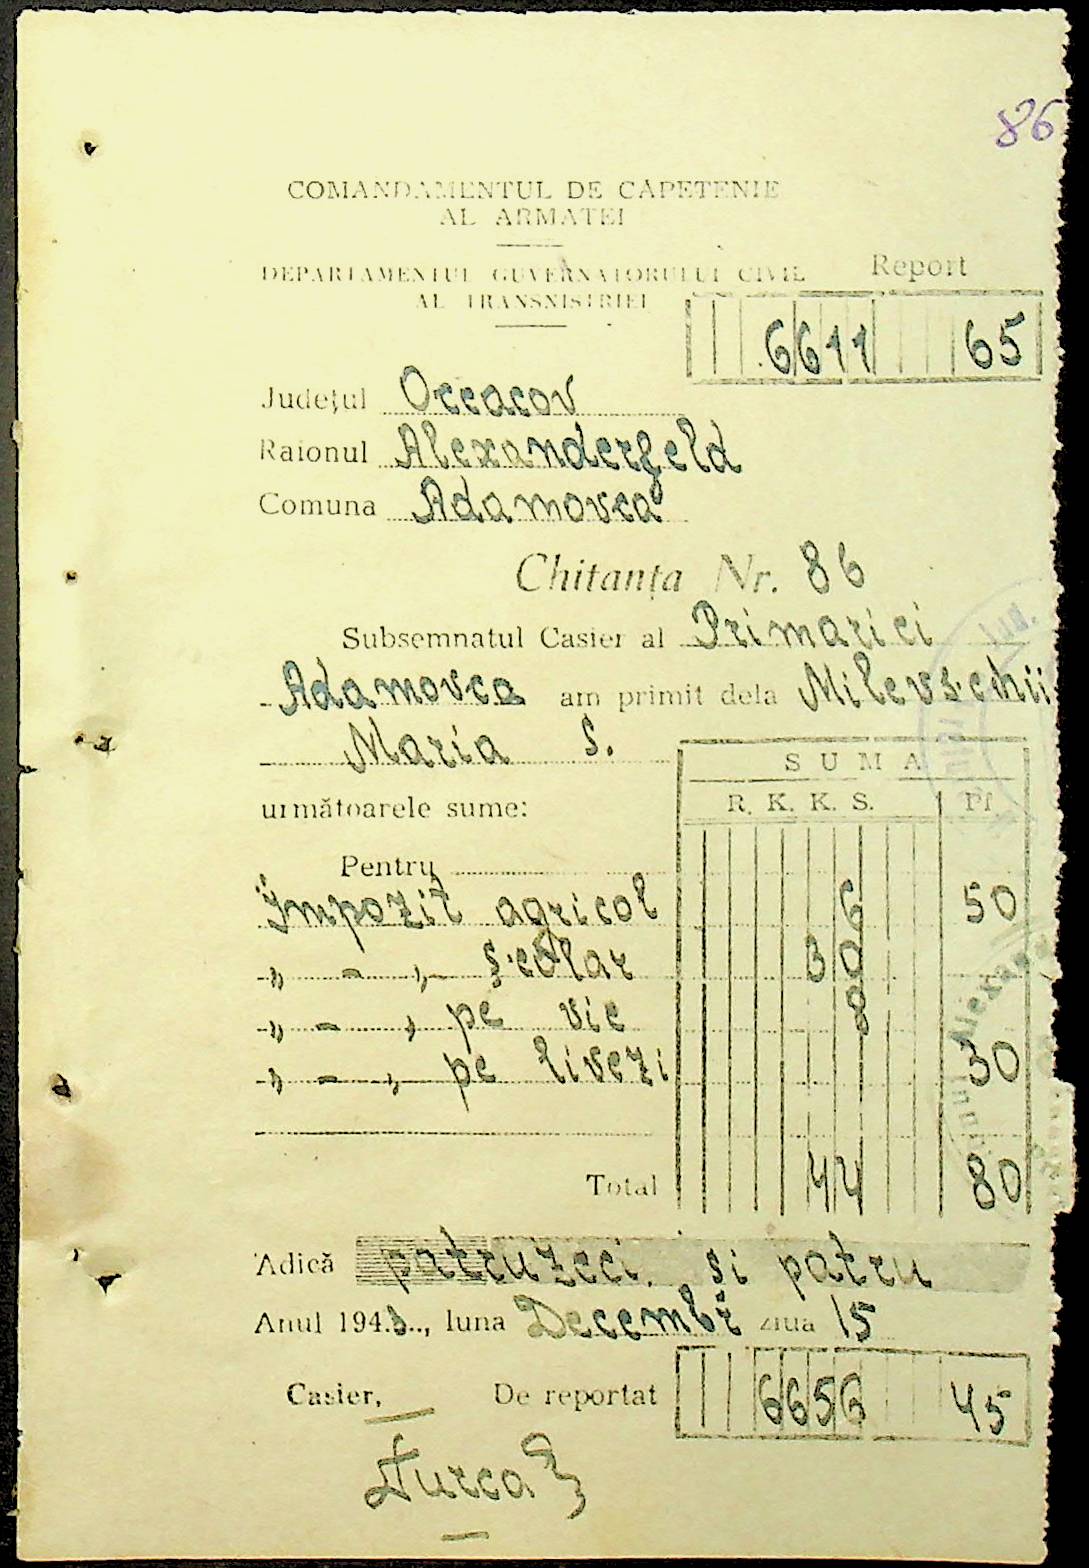 86
COMANDAMENTUL DE CAPETENIE
AL ARMATEI
DEPARTAMENTUL GUVERNATORULUI CIVIL
AL TRANSNISTRIEI
Report
6611 65
Județul Oceacov
Raionul Alexanderfeld
Comuna Adamovca
Chitanța Nr. 86
Subsemnatul Casier al Primariei
Adamovca am primit dela Milevschii
Maria S.
următoarele sume:
SUMA
R. K. K. S. Pf
Pentru
Impozit agricol 6 50
„ - „ școlar 30
„ - „ pe vie 8
„ - „ pe livezi 30
Total 44 80
Adică patruzeci și patru
Anul 1943, luna Decembr ziua 15
Casier, De reportat 6656 45
Țurca